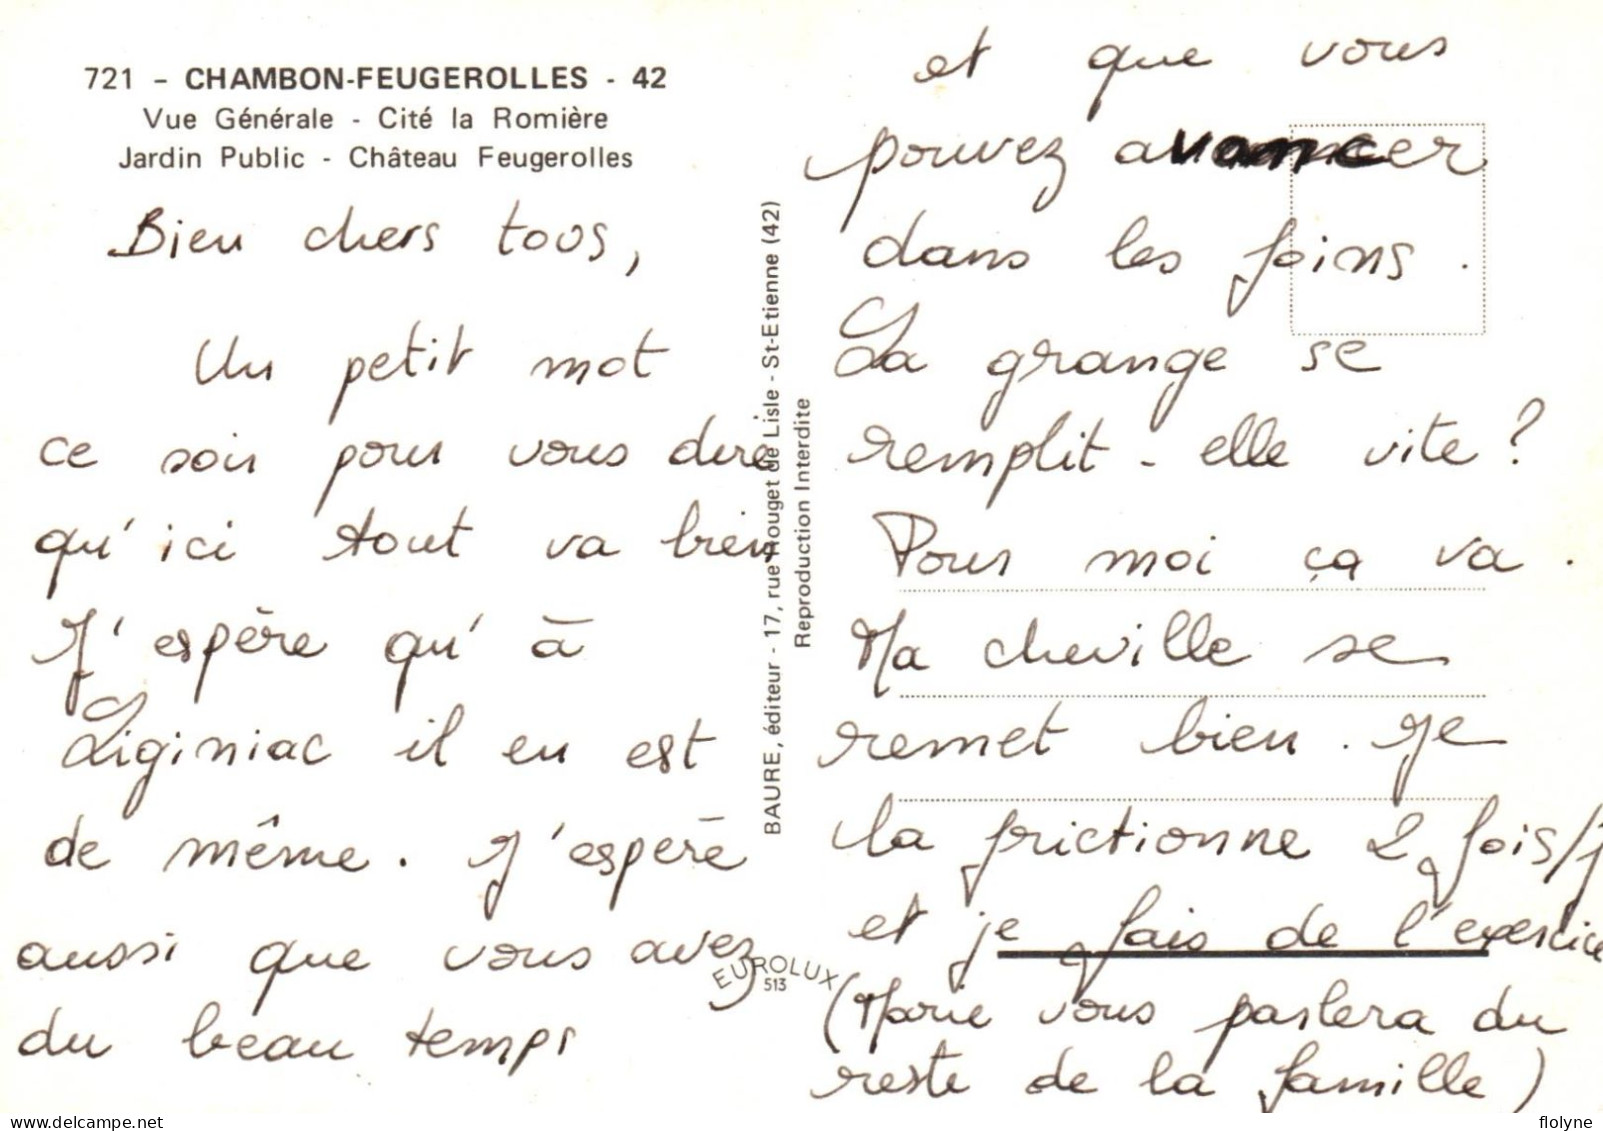 721 - CHAMBON-FEUGEROLLES - 42
Vue Générale - Cité la Romière
Jardin Public - Château Feugerolles
Bien chers tous,
Un petit mot
ce soir pour vous dire
qu'ici tout va bien
J'espère qu'à
Liginiac il en est
de même. J'espère
aussi que vous avez
du beau temps
BAURE, éditeur - 17, rue Rouget de Lisle - St-Etienne (42)
Reproduction Interdite
EUROLUX
513
et que vous
pouvez avancer
dans les foins.
La grange se
remplit-elle vite ?
Pour moi ça va.
Ma cheville se
remet bien. Je
la frictionne 2 fois/j
et je fais de l'exercice
(Marie vous parlera du
reste de la famille)
flolyne